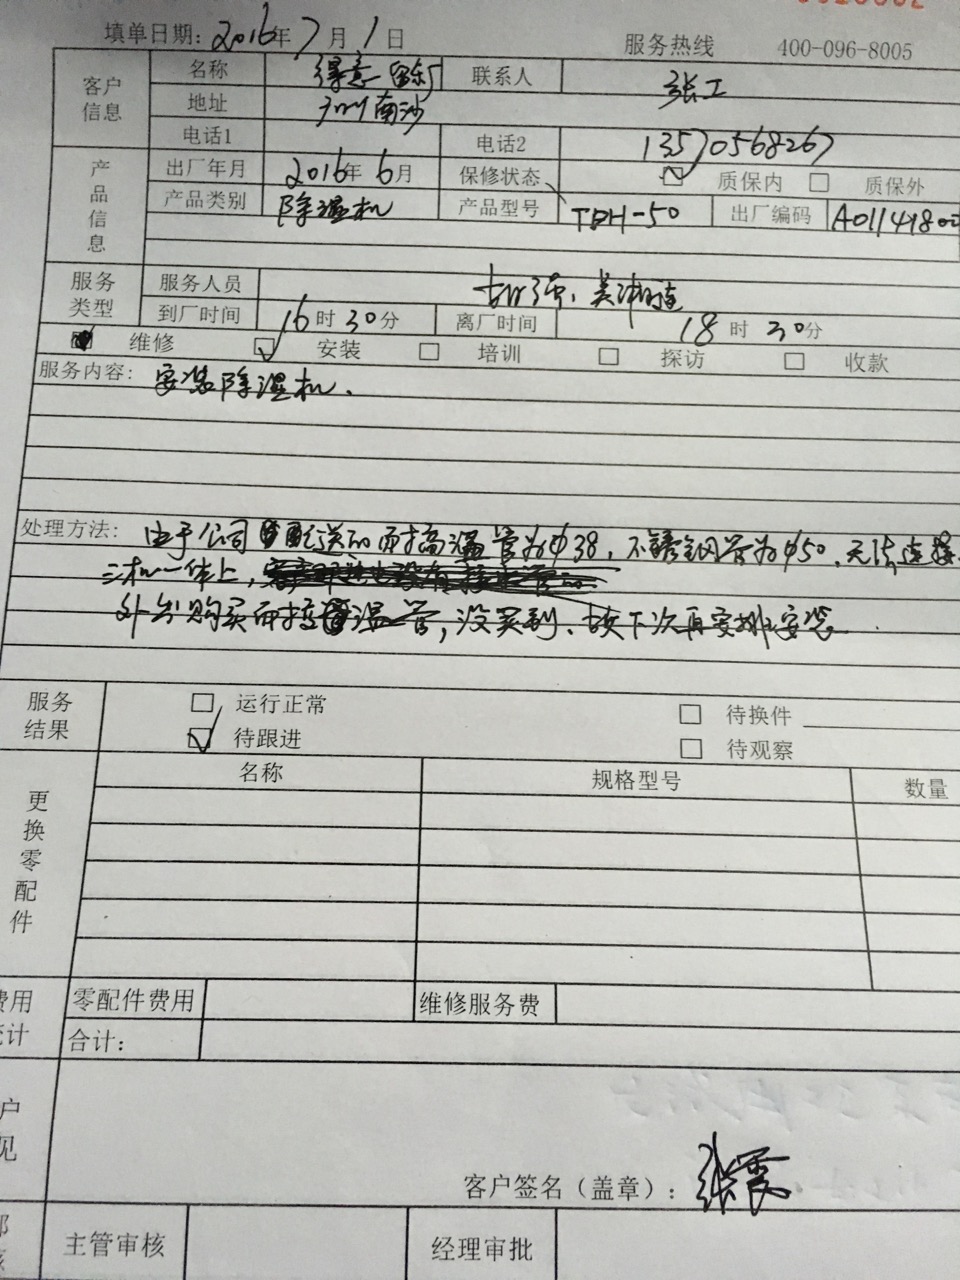 填单日期: 2016年7月1日
服务热线 400-096-8005
客户信息 名称 得意 联系人 张工
地址 广州南沙
电话1 电话2 13570568267
产品信息 出厂年月 2016年6月 保修状态 质保内 质保外
产品类别 除湿机 产品型号 TDH-50 出厂编码 A01141800
服务类型 服务人员
到厂时间 16时30分 离厂时间 18时30分
维修 安装 培训 探访 收款
服务内容: 安装除湿机.
处理方法: 由于公司配送的耐高温管为φ38,不锈钢管为φ50,无法连接
三机一体上,
外出购买耐高温管,没买到、故下次再安排安装.
服务结果 运行正常 待换件
待跟进 待观察
更换零配件 名称 规格型号 数量
费用 零配件费用 维修服务费
计 合计:
户
见
客户签名(盖章): 张霞
主管审核 经理审批